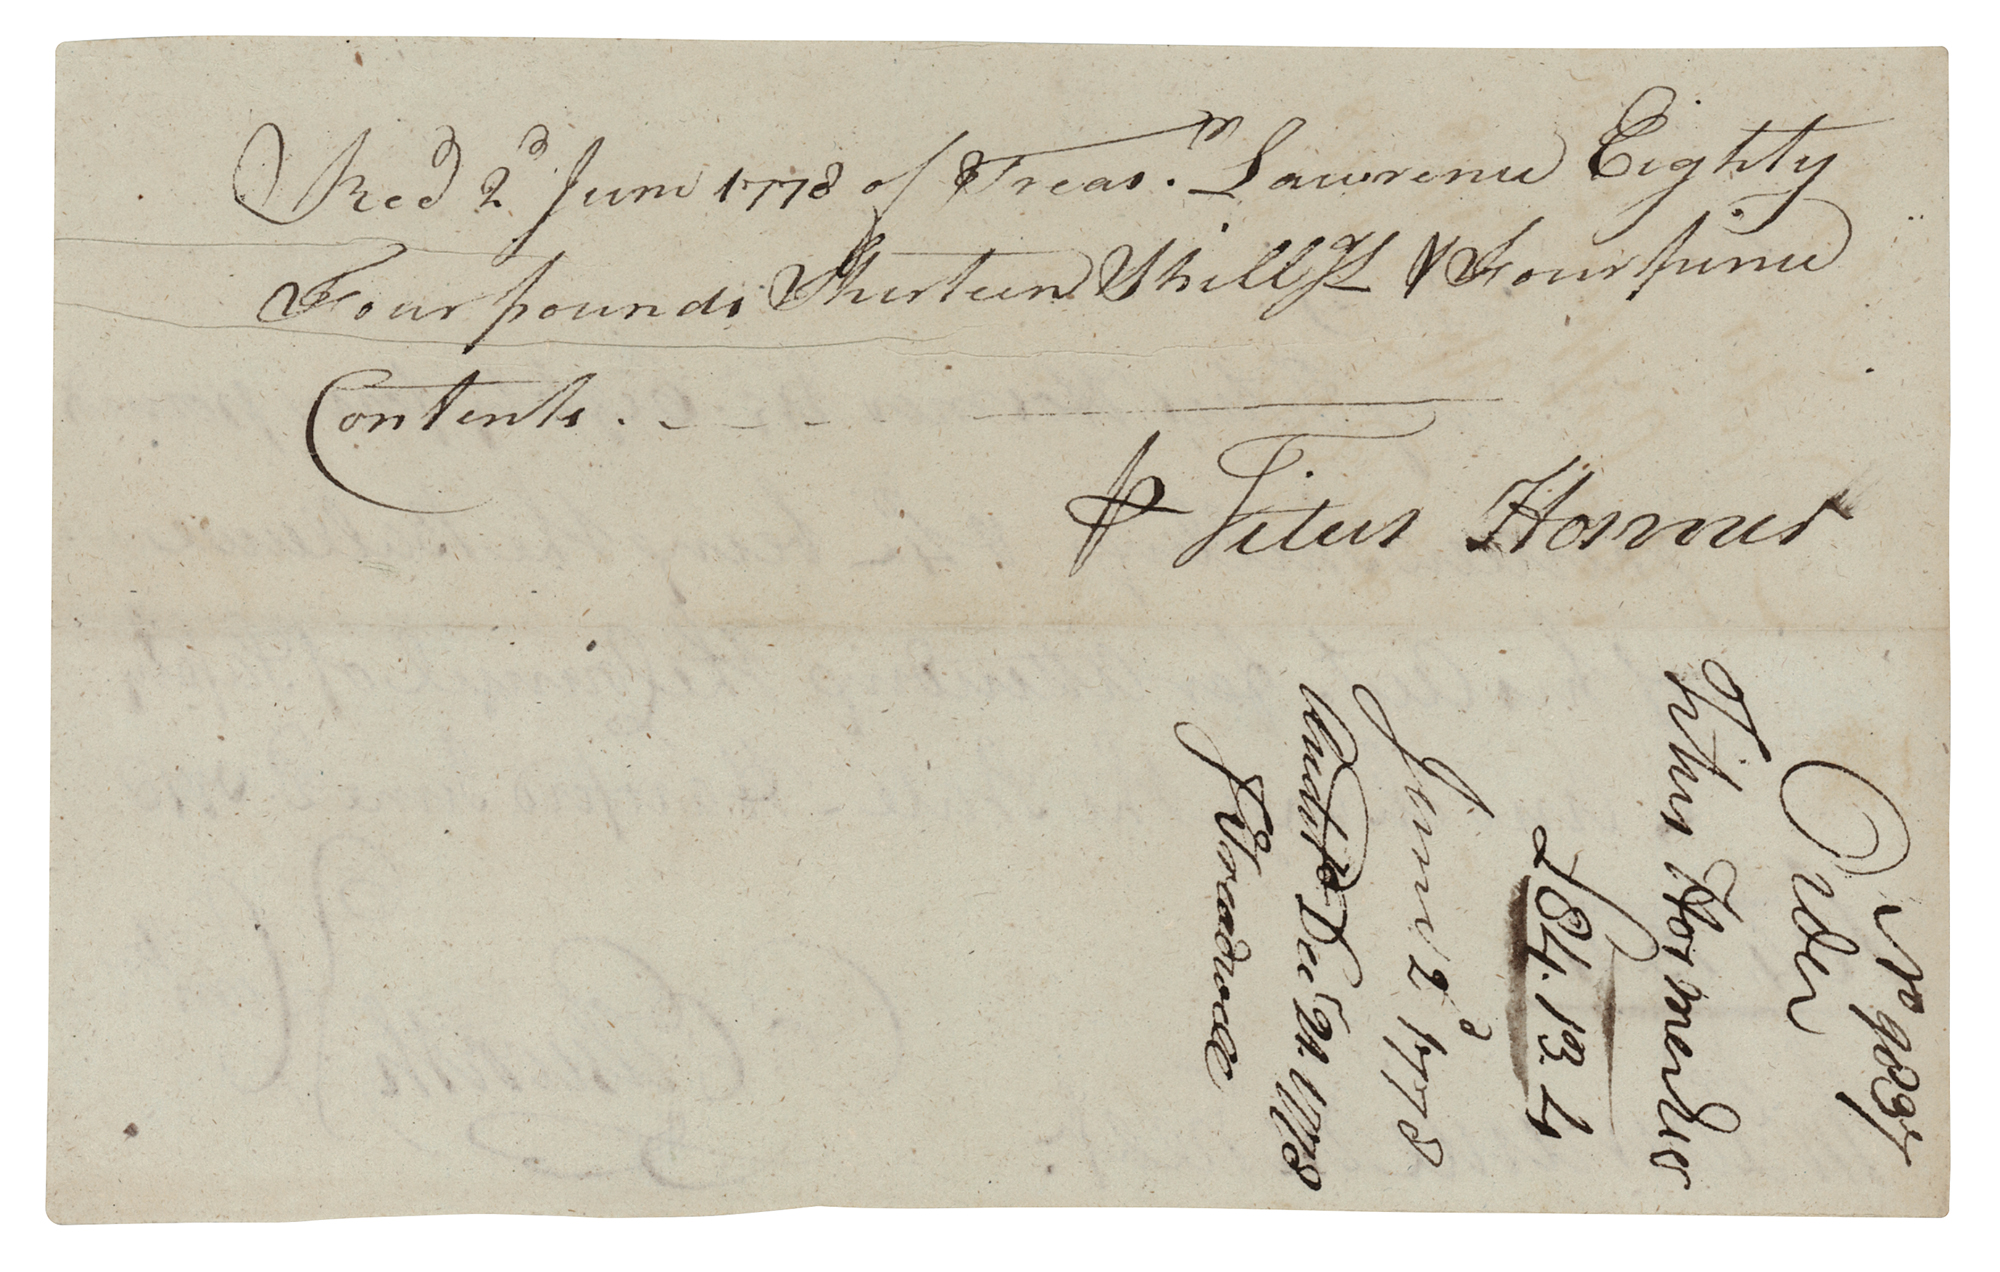 Recd 2d June 1778 of Treasr. Lawrence Eighty
Four pounds Thirteen Shillgs & Fourpence
Contents.
Titus Hosmer
No 9037
Order
Titus Hosmer
£84.13.4
June 2d 1778
Decr 21. 1778